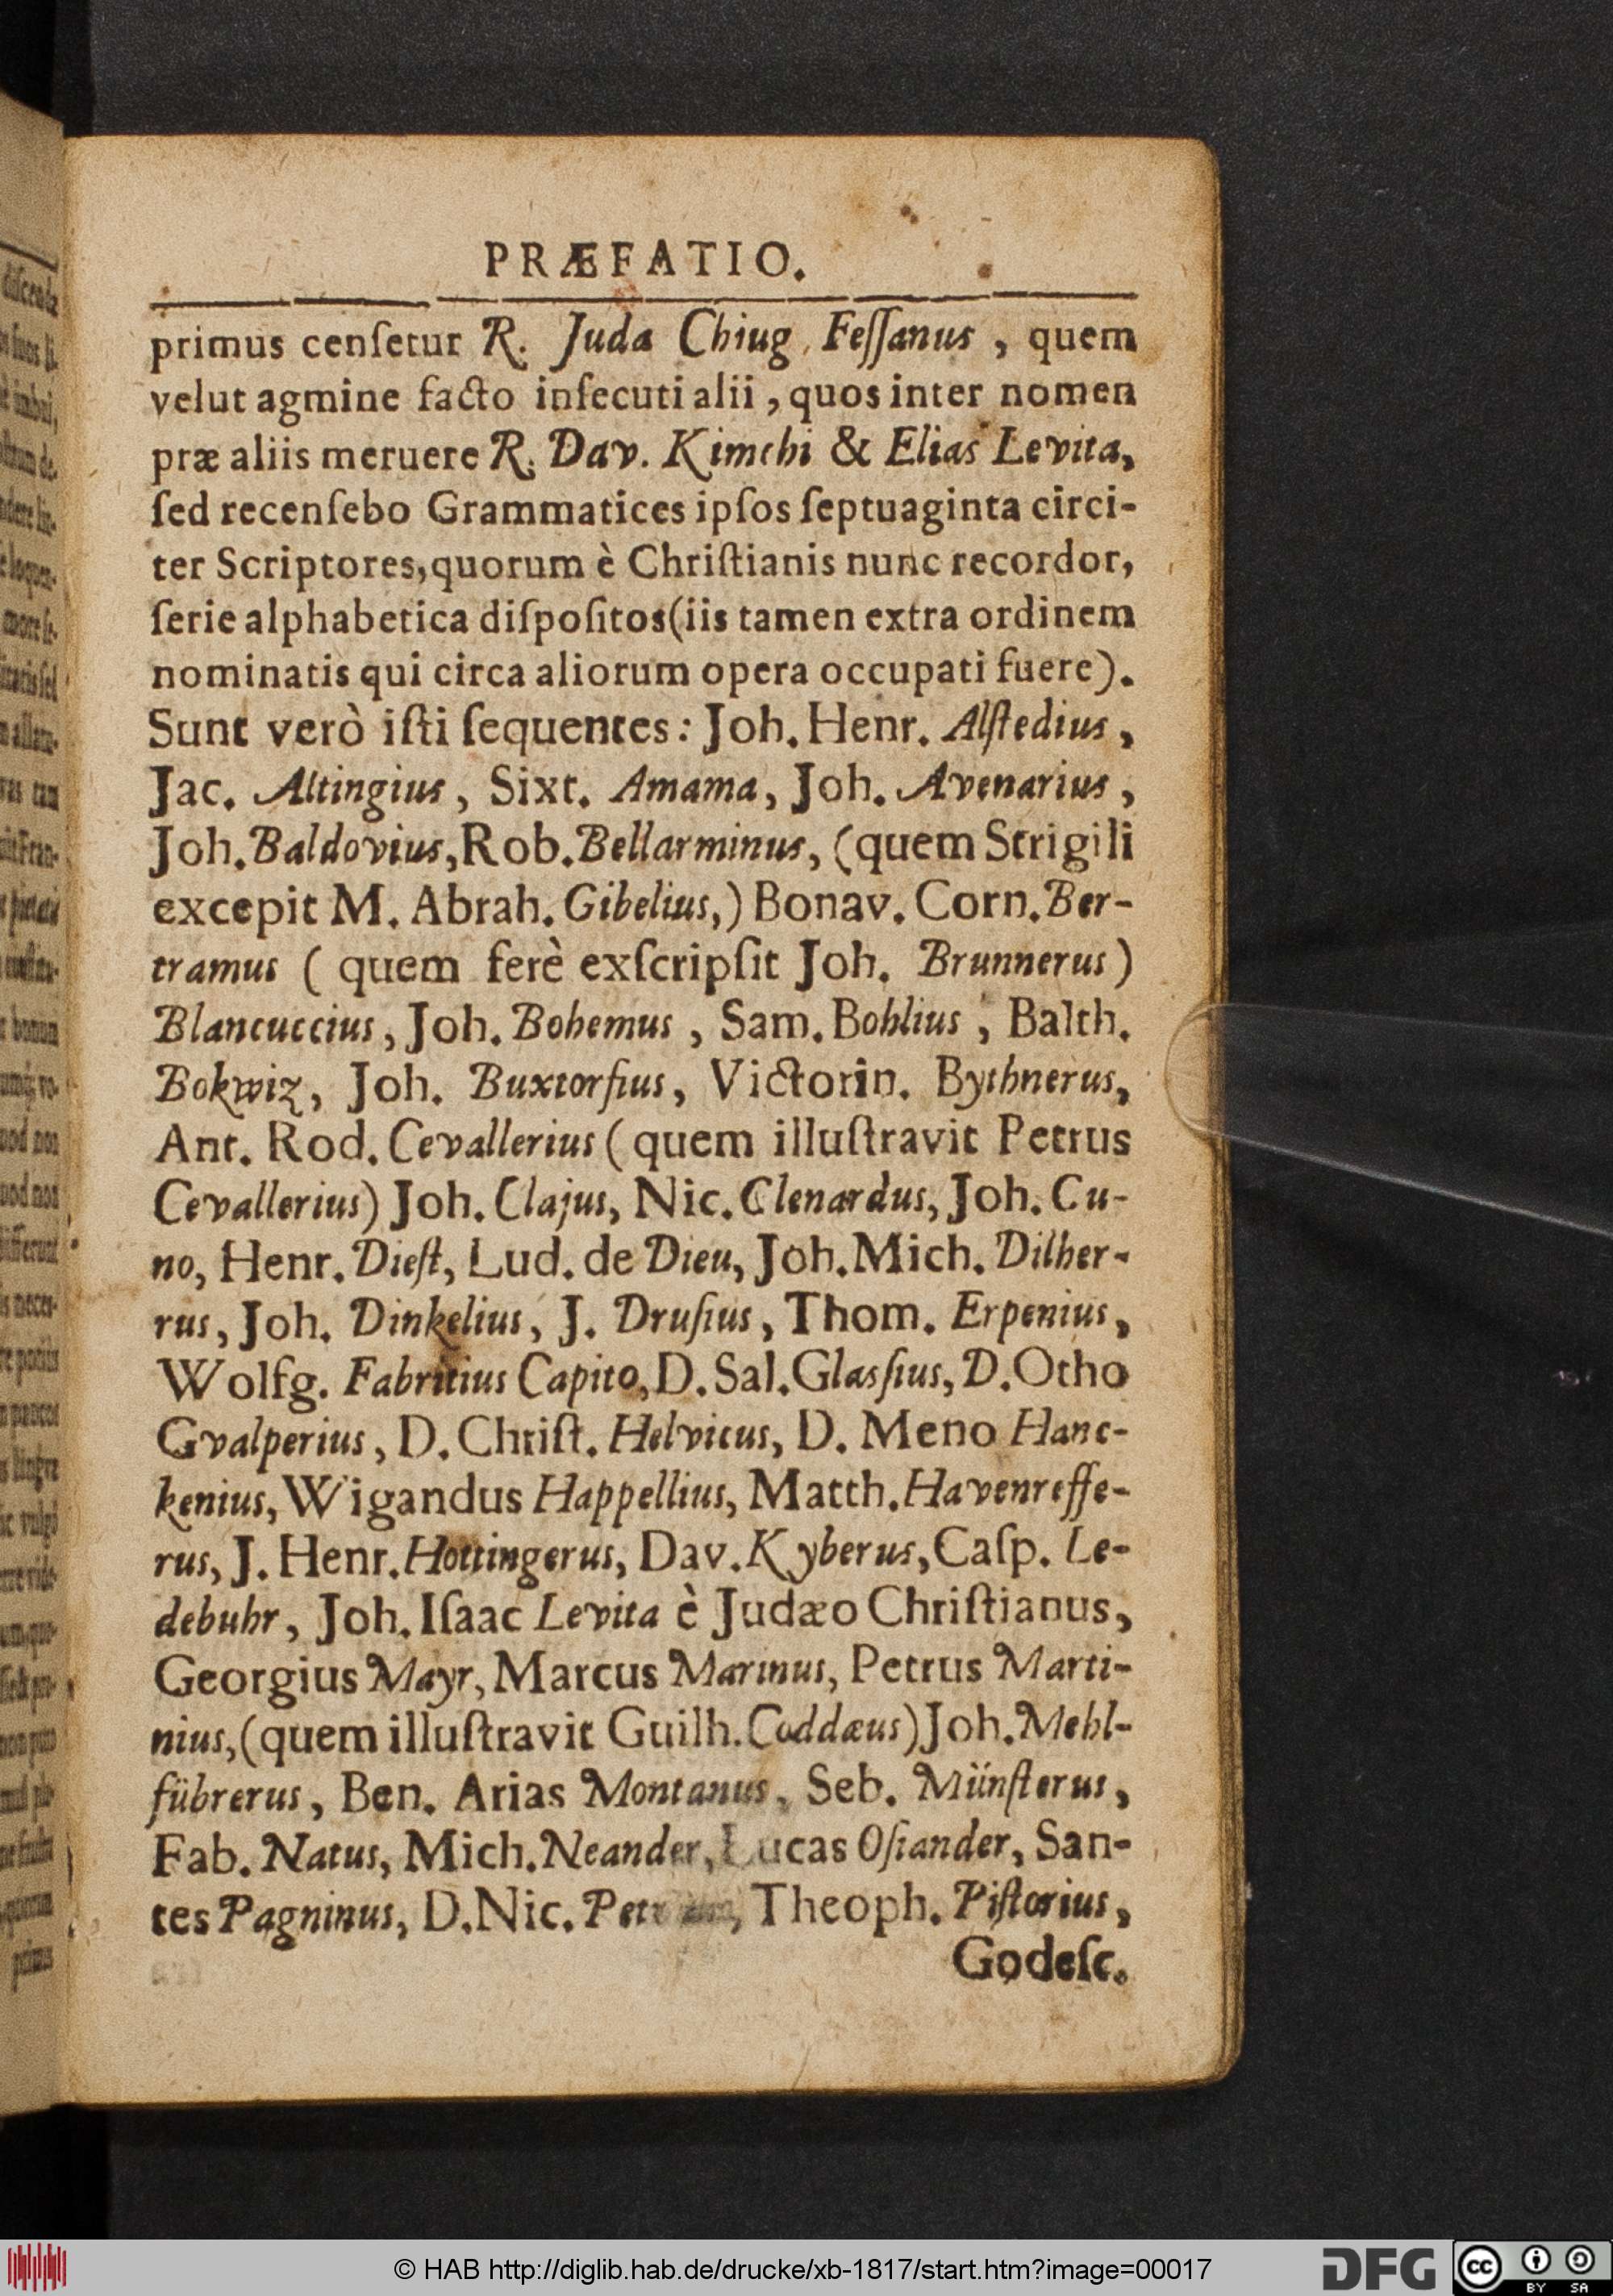 PRÆFATIO.
primus cenſetur R. Juda Chiug Feſſanus, quem
velut agmine facto inſecuti alii, quos inter nomen
præ aliis meruere R. Dav. Kimchi & Elias Levita,
ſed recenſebo Grammatices ipſos ſeptuaginta circi-
ter Scriptores, quorum è Chriſtianis nunc recordor,
ſerie alphabetica diſpoſitos (iis tamen extra ordinem
nominatis qui circa aliorum opera occupati fuere).
Sunt verò iſti ſequentes: Joh. Henr. Alſtedius,
Jac. Altingius, Sixt. Amama, Joh. Avenarius,
Joh. Baldovius, Rob. Bellarminus, (quem Strigili
excepit M. Abrah. Gibelius,) Bonav. Corn. Ber-
tramus (quem ferè exſcripſit Joh. Brunnerus)
Blancuccius, Joh. Bohemus, Sam. Bohlius, Balth.
Bokwiz, Joh. Buxtorfius, Victorin. Bythnerus,
Ant. Rod. Cevallerius (quem illuſtravit Petrus
Cevallerius) Joh. Clajus, Nic. Clenardus, Joh. Cu-
no, Henr. Dieſt, Lud. de Dieu, Joh. Mich. Dilher-
rus, Joh. Dinkelius, J. Druſius, Thom. Erpenius,
Wolfg. Fabritius Capito, D. Sal. Glasſius, D. Otho
Gvalperius, D. Chriſt. Helvicus, D. Meno Hanc-
kenius, Wigandus Happellius, Matth. Havenreffe-
rus, J. Henr. Hottingerus, Dav. Kyberus, Caſp. Le-
debuhr, Joh. Iſaac Levita è Judæo Chriſtianus,
Georgius Mayr, Marcus Marinus, Petrus Marti-
nius, (quem illuſtravit Guilh. Coddæus) Joh. Mehl-
führerus, Ben. Arias Montanus, Seb. Münſterus,
Fab. Natus, Mich. Neander, Lucas Oſiander, San-
tes Pagninus, D. Nic. Theoph. Piſtorius,
Godeſc.
© HAB http://diglib.hab.de/drucke/xb-1817/start.htm?image=00017
DFG
cc BY SA